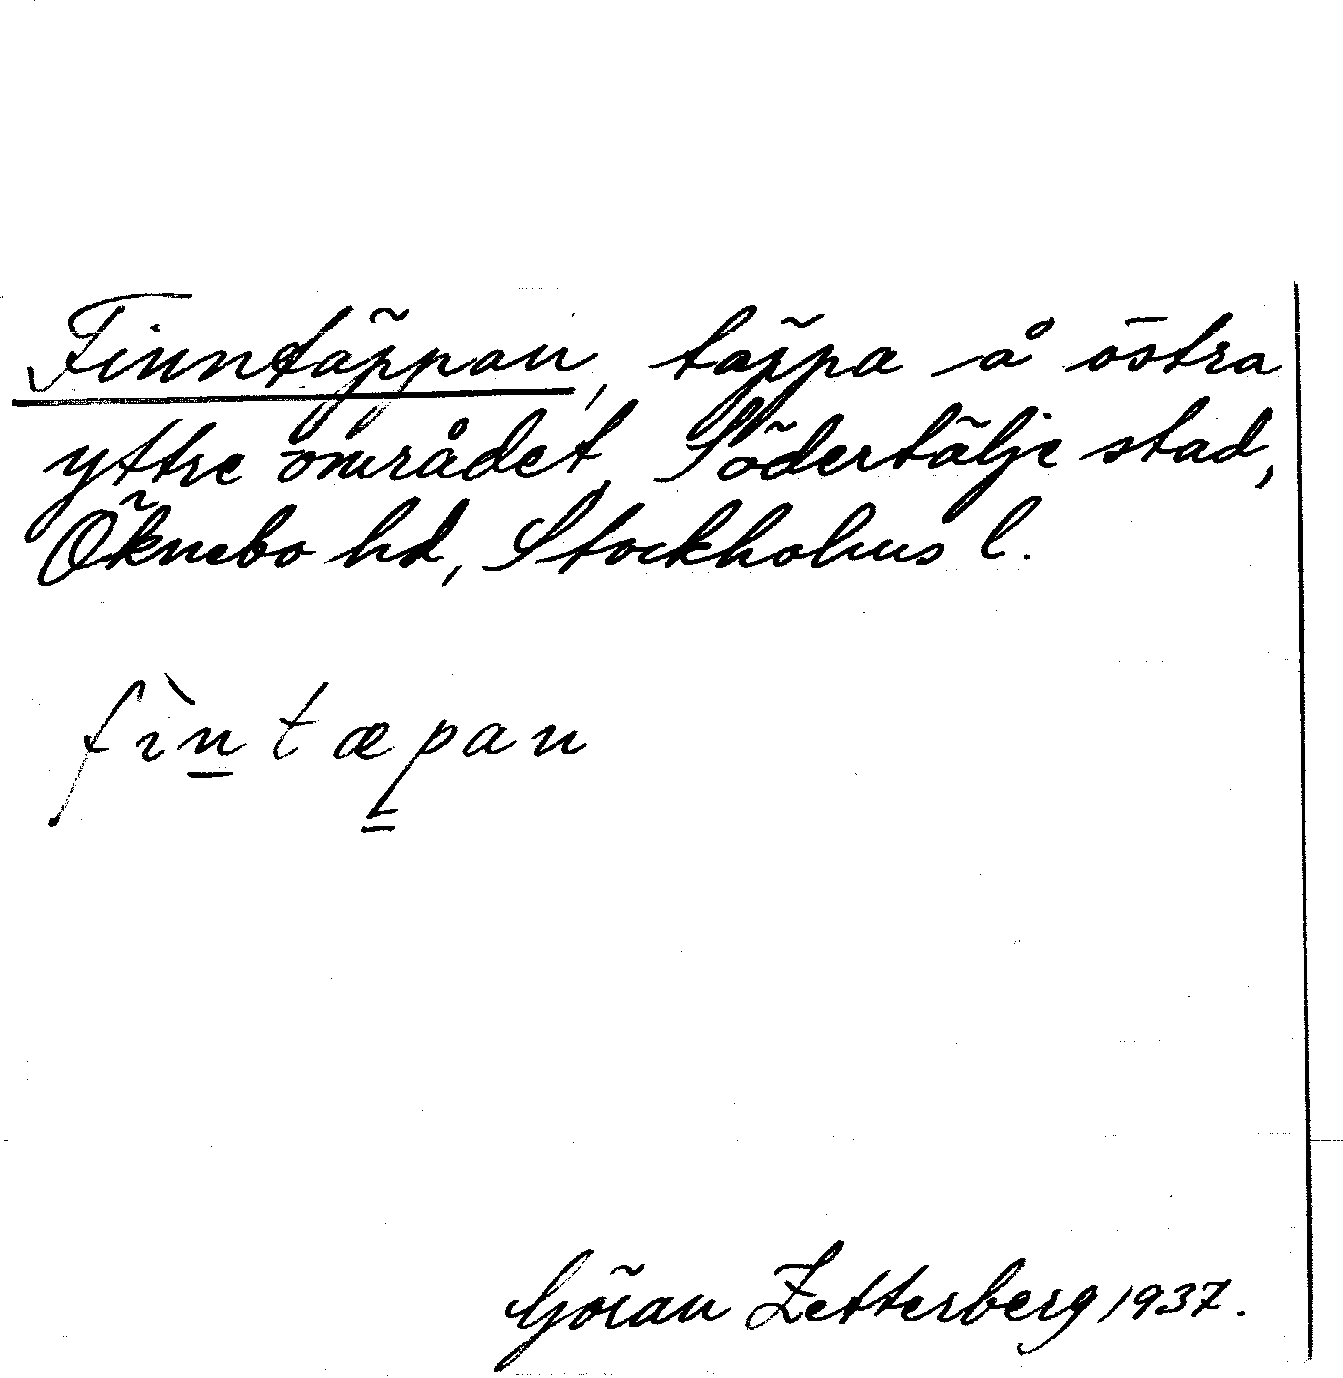 Finntäppan, täppa å östra
yttre området, Södertälje stad,
Öknebo hd, Stockholms l.
fìn̲tæp̳an
Göran Zetterberg 1937.